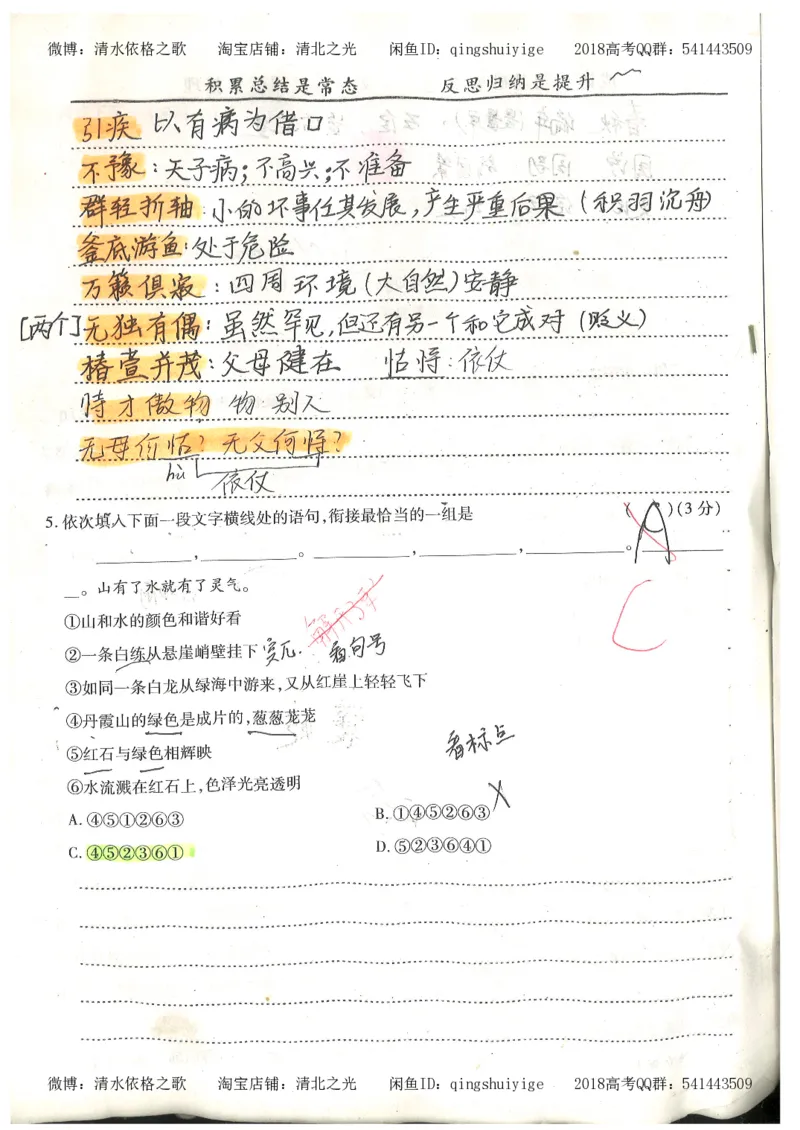 微博：清水依格之歌 淘宝店铺：清北之光 闲鱼ID：qingshuiyige 2018高考QQ群：541443509
积累总结是常态 反思归纳是提升
引疾 以有病为借口
不豫：天子病；不高兴；不准备
群轻折轴：小的坏事任其发展，产生严重后果（积羽沉舟）
釜底游鱼：处于危险
万籁俱寂：四周环境（大自然）安静
[两个]无独有偶：虽然罕见，但还有另一个和它成对（贬义）
椿萱并茂：父母健在 怙恃：依仗
恃才傲物 物：别人
无母何怙？无父何恃？
hù 依仗
5.依次填入下面一段文字横线处的语句，衔接最恰当的一组是 （A）（3分）
，。，，。
。山有了水就有了灵气。
C
①山和水的颜色和谐好看
②一条白练从悬崖峭壁挂下 看句号
③如同一条白龙从绿海中游来，又从红崖上轻轻飞下
④丹霞山的绿色是成片的，葱葱茏茏
看标点
⑤红石与绿色相辉映
⑥水流溅在红石上，色泽光亮透明
A.④⑤①②⑥③ B.①④⑤②⑥③
C.④⑤②③⑥① D.⑤②③⑥④①
微博：清水依格之歌 淘宝店铺：清北之光 闲鱼ID：qingshuiyige 2018高考QQ群：541443509